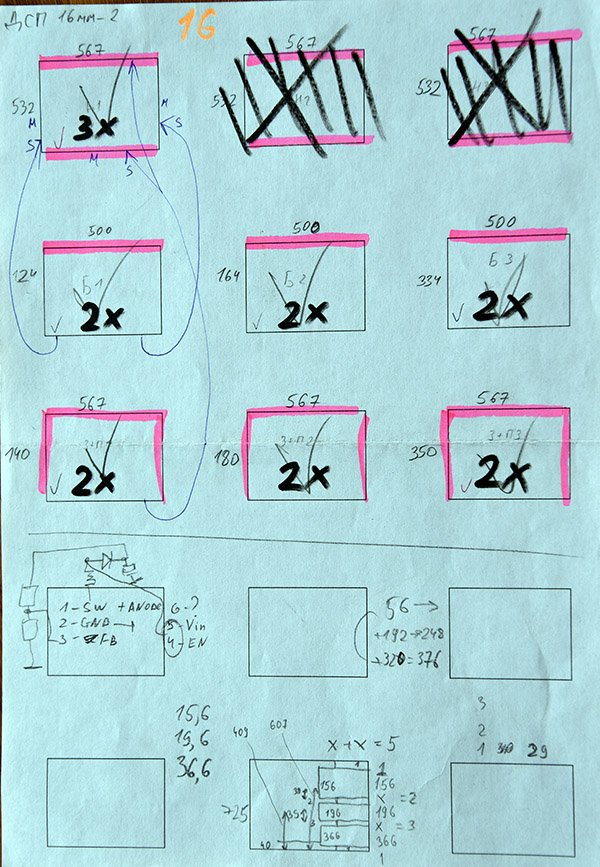 ДСП 16мм-2
16
567
532
3x
М
S
М
S
М
S
567
532
567
532
500
124
Б1
2x
500
164
Б2
2x
500
334
Б3
2x
567
140
З+П1
2x
567
180
З+П2
2x
567
350
З+П3
2x
1-SW +ANODE
2-GND
3-FB
6-?
5-Vin
4-EN
56→
+192→248
+320=376
15,6
19,6
36,6
409
607
x+x=5
725
40
35
1
156
196
366
1
156
x =2
196
x =3
366
1
3
2
1
29